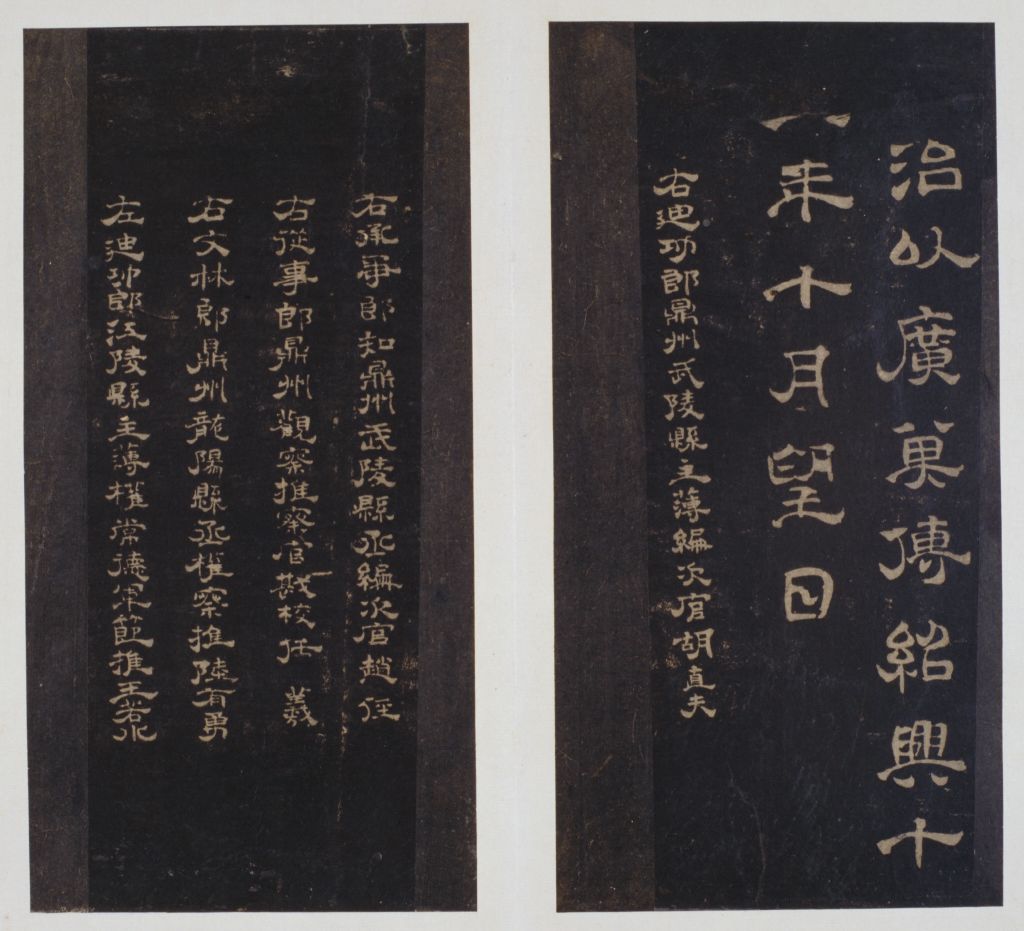 沿以廣其傳紹興十
一年十月望日
右迪功郎鼎州武陵縣主薄編次官胡直夫
右承事郎知鼎州武陵縣丞編次官趙俓
右從事郎鼎州觀察推察官戡校任 義
右文林郎鼎州龍陽縣丞權察推陸有勇
左迪功郎江陵縣主薄權常德軍節推王若水